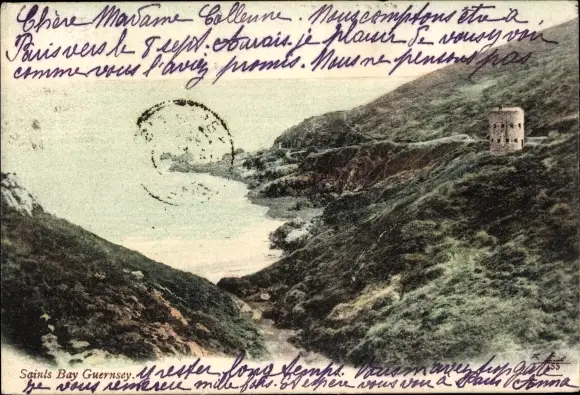 Chère Madame Collenne. Nous comptons être à
Paris vers le 8 sept. Aurais-je plaisir de vous y voir
comme vous l'aviez promis. Nous ne pensons pas
Saints Bay Guernsey. y rester long temps. Vous m'avez trop gaté
Je vous remercie mille fois et espère vous voir à Paris Anna